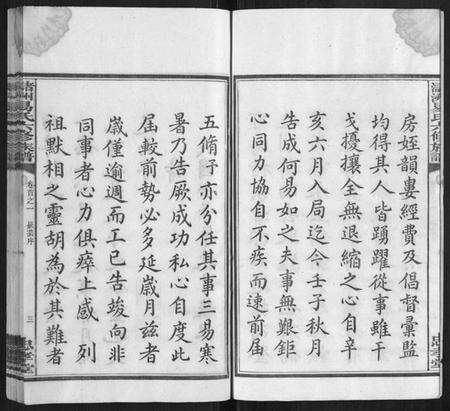 房姪韻婁經費及倡督彙監
均得其人皆踴躍從事雖干
戈擾攘全無退縮之心自辛
亥六月入局迄今壬子秋月
告成何易如之夫事無艱鉅
心同力協自不疾而速前屆
五脩予亦分任其事三易寒
暑乃告厥成功私心自度此
屆較前勢必多延歲月兹者
歲僅逾週而工已告竣向非
同事者心力俱瘁上感 列
祖默相之靈胡為於其難者
卷首之一
序
三